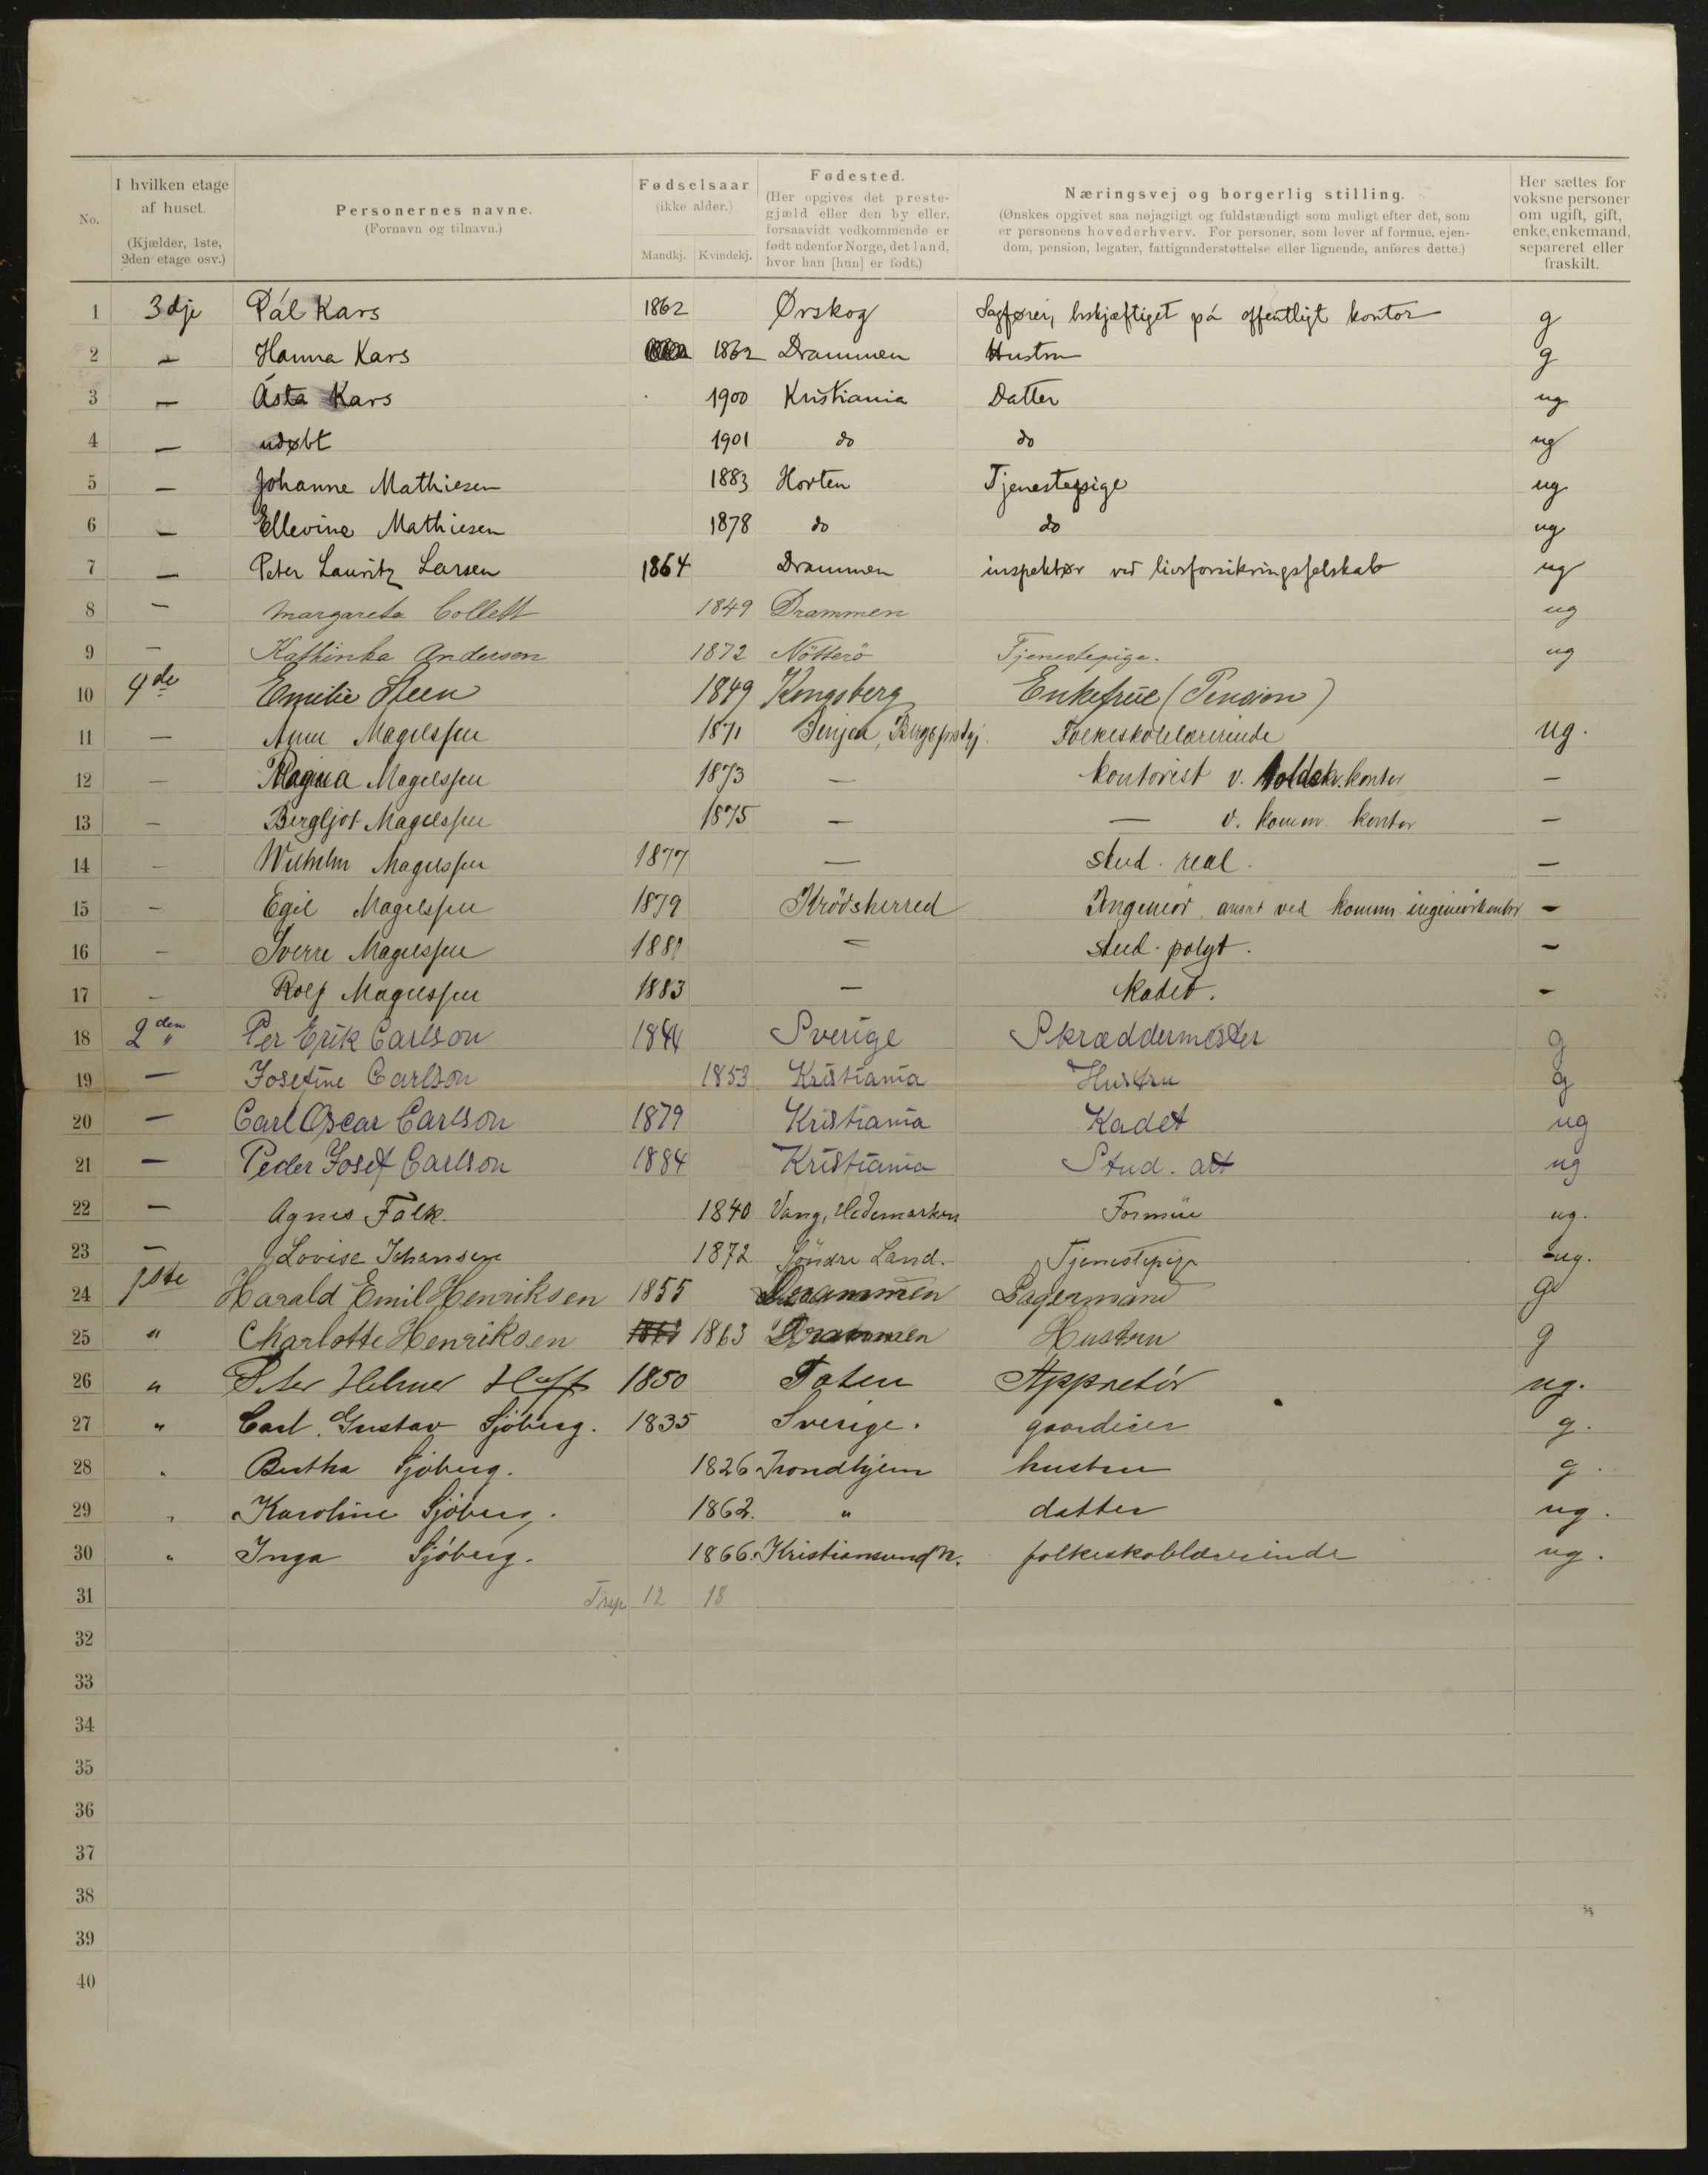 No.
I hvilken etage
af huset.
(Kjælder, 1ste,
2den etage osv.)
Personernes navne.
(Fornavn og tilnavn.)
Fødselsaar
(ikke alder.)
Mandkj. Kvindekj.
Fødested.
(Her opgives det preste-
gjæld eller den by eller,
forsaavidt vedkommende er
født udenfor Norge, det land,
hvor han [hun] er født.)
Næringsvej og borgerlig stilling.
(Ønskes opgivet saa nøjagtigt og fuldstændigt som muligt efter det, som
er personens hovederhverv. For personer, som lever af formue, ejen-
dom, pension, legater, fattigunderstøttelse eller lignende, anføres dette.)
Her sættes for
voksne personer
om ugift, gift,
enke, enkemand,
separeret eller
fraskilt.
1 3dje Pál Kars 1862 Ørskog Sagfører, beskjæftiget pá offentligt kontor g
2 — Hanna Kars 1862 Drammen Hustru g
3 — Ásta Kars 1900 Kristiania Datter ug
4 — udøbt 1901 do do ug
5 — Johanne Mathiesen 1883 Horten Tjenestepige ug
6 — Ellevine Mathiesen 1878 do do ug
7 — Peter Lauritz Larsen 1864 Drammen inspektør ved livsforsikringsselskab ug
8 — Margareta Collett 1849 Drammen ug
9 — Kathinka Andersen 1872 Nötterö Tjenestepige. ug
10 4de Emilie Steen 1849 Kongsberg Enkefrue (Pension)
11 — Anna Magelssen 1871 Senjen, Folkeskolelærerinde ug.
12 — Magna Magelssen 1873 — kontorist v. kontor —
13 — Bergljot Magelssen 1875 — — v. komm. kontor —
14 — Wilhelm Magelssen 1877 — stud. real. —
15 — Egil Magelssen 1879 Krödsherred Ingeniør, ansat ved komm. ingeniörkontor —
16 — Sverre Magelssen 1881 — stud. polyt. —
17 — Rolf Magelssen 1883 — Kadet. —
18 2den Per Erik Carlson Sverige Skræddermester g
19 — Josefine Carlson 1853 Kristiania Hustru g
20 — Carl Oscar Carlson 1879 Kristiania Kadet ug
21 — Peder Josef Carlson 1884 Kristiania Stud. art ug
22 — Agnes Falk. 1840 Vang, Hedemarken Formue ug.
23 — Lovise Johansen 1872 Söndre Land. Tjenestepige ug.
24 1ste Harald Emil Henriksen 1855 Drammen Lagermand g
25 " Charlotte Henriksen 1863 1863 Drammen Hustru g
26 " Peter Helmer Hoff 1850 Toten Appretör ug.
27 " Carl Gustav Sjöberg. 1835 Sverige. gaardeier g.
28 " Bertha Sjöberg. 1826 Trondhjem hustru g.
29 " Karoline Sjöberg. 1862. " datter ug.
30 " Inga Sjöberg. 1866. Kristiansund N. folkeskolelærerinde ug.
31 12 18
32
33
34
35
36
37
38
39
40